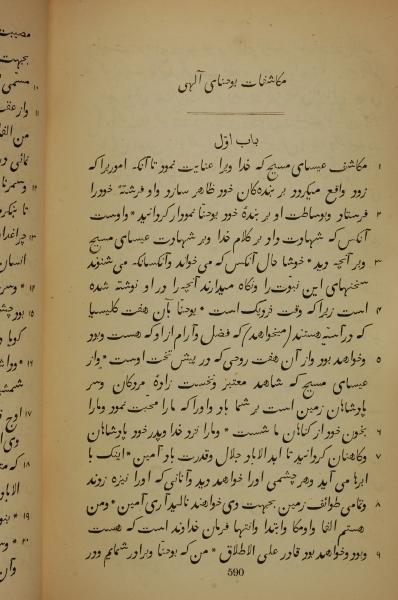 مکاشفات یوحنای آلهی
باب اوّل
۱ مکاشفهٔ عیسای مسیح که خدا ویرا عنایت نمود تا آنکه اموریرا که
زود واقع میگردد بر بندهکان خود ظاهر سازد و او فرشتهٔ خودرا
۲ فرستاد وبوساطت او بر بندهٔ خود یوحنّا نمودار کردانید * واوست
آنکس که شهادت داد بر کلام خدا وبر شهادت عیسای مسیح
۳ وبر آنچه دید * خوشا حال آنکس که می‌خواند وآنکسانکه می‌شنوند
سخنهای این نبوّت را ونکاه میدارند آنچه‌را در او نوشته شده
۴ است زیرا که وقت نزدیک است * یوحنّا بآن هفت کلیسیا
که در آسیّه هستند (میخواهد) که فضل وآرام از او که هست وبود
۵ وخواهد بود واز آن هفت روحی که در پیش تخت اوست * واز
عیسای مسیح که شاهد معتبر ونخست زادهٔ مردکان وسر
پادشاهان زمین است بر شما باد واورا که مارا محبّت نمود ومارا
۶ بخون خود از کناهان ما شست * ومارا نزد خدا وپدر خود پادشاهان
۷ وکاهنان کردانید تا ابد الاباد جلال وقدرت باد آمین * اینک با
ابرها می آید وهر چشمی اورا خواهد دید وآنانی که اورا نیزه زدند
۸ وتمامی طوائف زمین بجهت وی خواهند نالید آری آمین * ومن
هستم الفا واومکا وابتدا وانتها فرمان خداوند است که هست
۹ وبود وخواهد بود قادر علی الاطلاق * من که یوحنّا وبرادر شمایم ودر
590